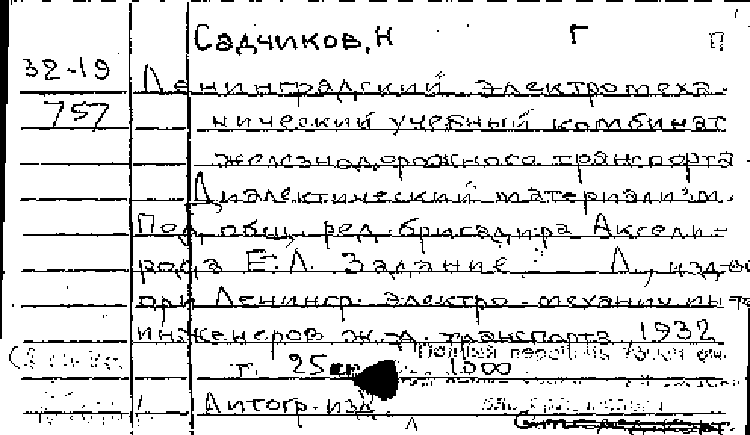 Садчиков, Н Г П
32-19 Ленинградский электромеха-
757 нический учебный комбинат
железнодорожного транспорта.
Диалектический материализм.
Под общ. ред. бригадира Аксель-
рода Е. Л. Задание Л., изд-во
при Ленингр. электро-механич. ин-те
инженеров ж.-д. транспорта, 1932
т. 25 1000
Литогр. изд.